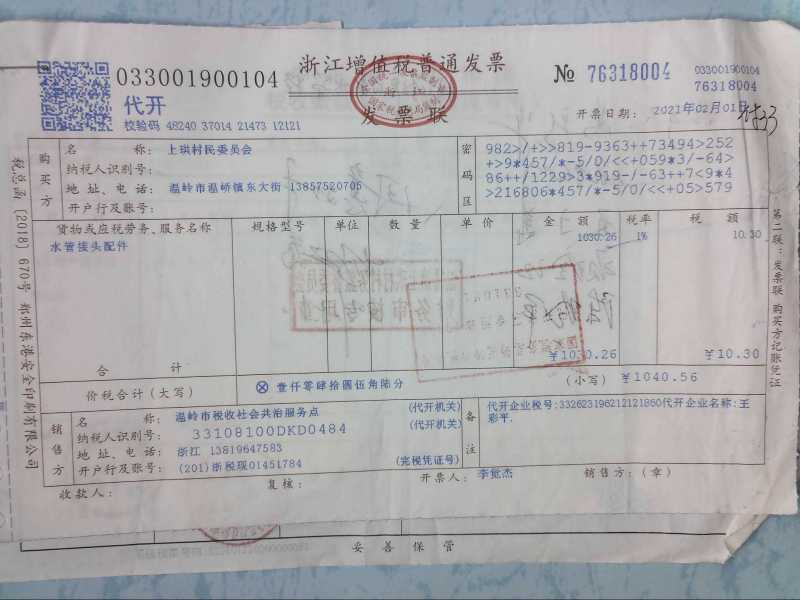 浙江增值税普通发票
033001900104
№ 76318004
033001900104
76318004
代开
发票联
校验码 48240 37014 21473 12121
开票日期: 2021年02月01日
购买方
名 称: 上珙村民委员会
纳税人识别号:
地 址、电 话: 温岭市温峤镇东大街 13857520705
开户行及账号:
密码区
982>/+>>819-9363++73494>252
+>9*457/*-5/0/<<+059*3/-64>
86++/1229>3*919-/-63++7<9*4
>216806*457/*-5/0/<<+05>579
货物或应税劳务、服务名称 规格型号 单位 数 量 单 价 金 额 税率 税 额
水管接头配件 1030.26 1% 10.30
合 计 ¥1030.26 ¥10.30
价税合计(大写) ⊗ 壹仟零肆拾圆伍角陆分 (小写) ¥1040.56
销售方
名 称: 温岭市税收社会共治服务点 (代开机关)
纳税人识别号: 33108100DKD0484 (代开机关)
地 址、电 话: 浙江 13819647583
开户行及账号: (201)浙税现01451784 (完税凭证号)
备注
代开企业税号:332623196212121860代开企业名称:王
彩平.
收款人:
复核:
开票人: 李觉杰
销售方:(章)
税总函〔2018〕670号 郑州东港安全印刷有限公司
第二联:发票联 购买方记账凭证
妥善保管